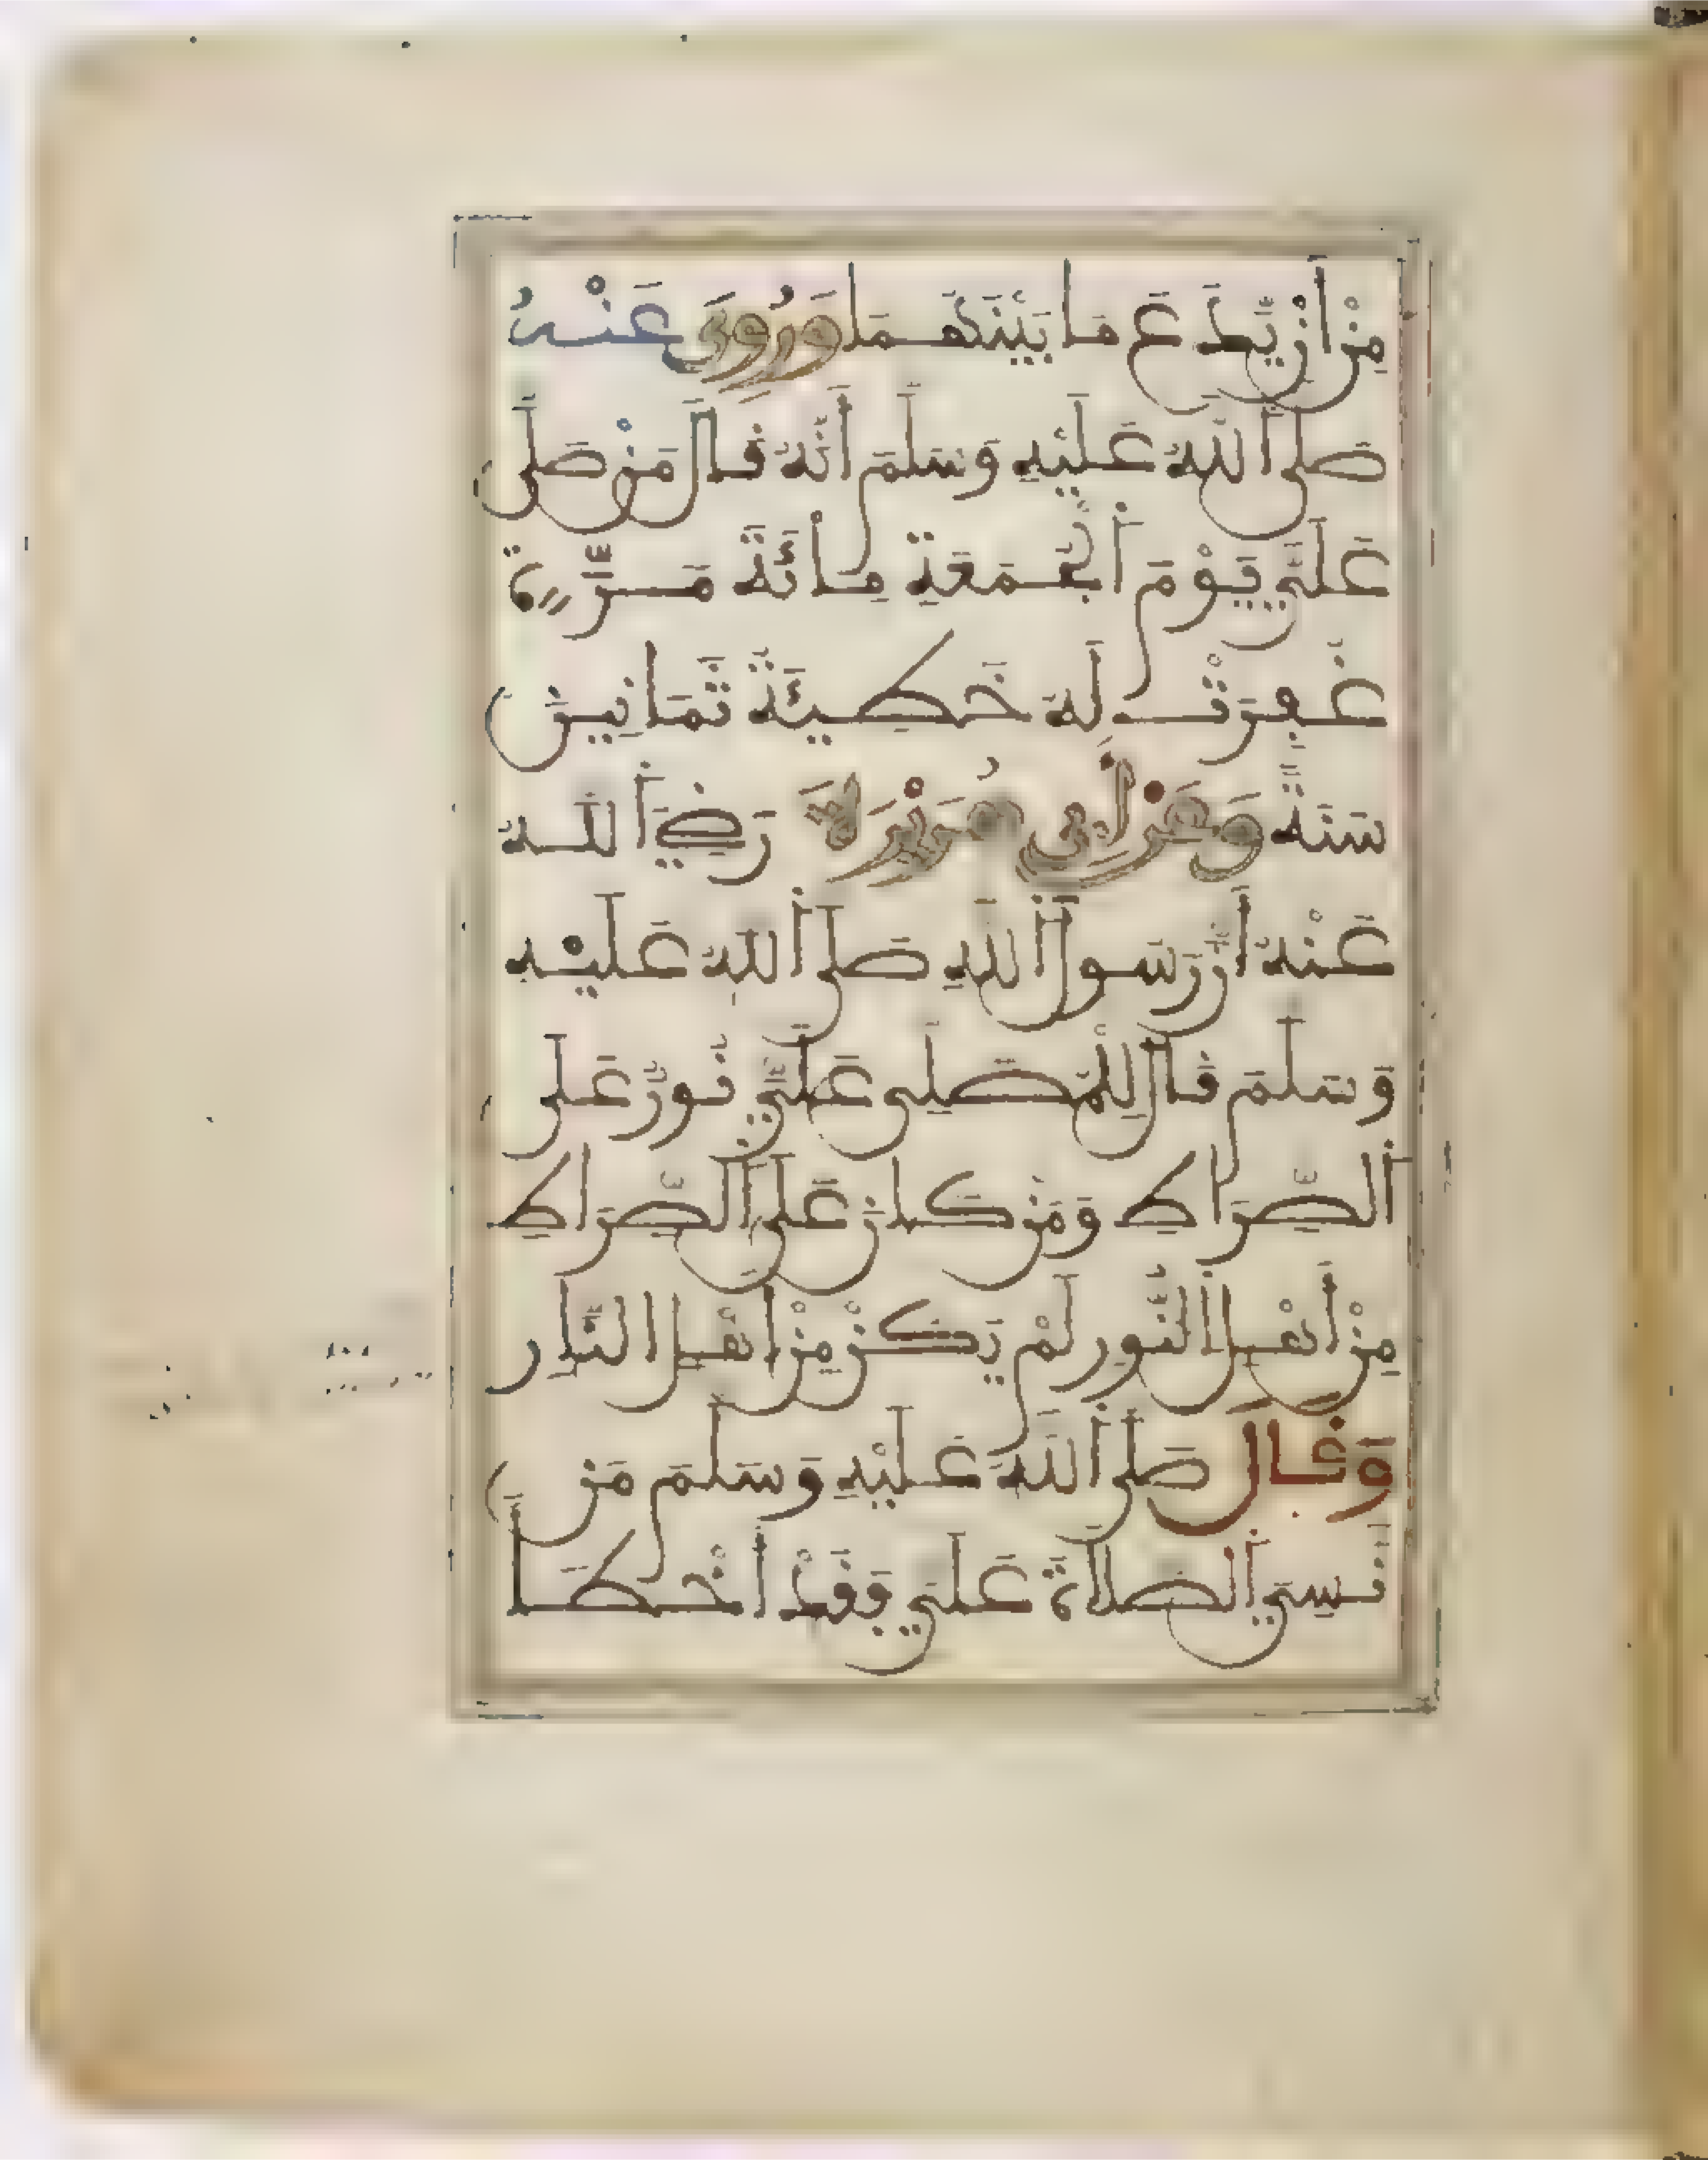 مِنْ أَنْ يَّدَعَ مَا بَيْنَهُمَا وَرُوِيَ عَنْهُ
صَلَّى اللَّهُ عَلَيْهِ وَسَلَّمَ أَنَّهُ قَالَ مَنْ صَلَّى
عَلَيَّ يَوْمَ الْجُمُعَةِ مِائَةَ مَرَّةٍ
غُفِرَتْ لَهُ خَطِيئَةُ ثَمَانِينَ
سَنَةً وَعَنْ أَبِي هُرَيْرَةَ رَضِيَ اللَّهُ
عَنْهُ أَنَّ رَسُولَ اللَّهِ صَلَّى اللَّهُ عَلَيْهِ
وَسَلَّمَ قَالَ لِلْمُصَلِّي عَلَيَّ نُورٌ عَلَى
الصِّرَاطِ وَمَنْ كَانَ عَلَى الصِّرَاطِ
مِنْ أَهْلِ النُّورِ لَمْ يَكُنْ مِنْ أَهْلِ النَّارِ
وَقَالَ صَلَّى اللَّهُ عَلَيْهِ وَسَلَّمَ مَنْ
نَسِيَ الصَّلَاةَ عَلَيَّ فَقَدْ أَخْطَأَ